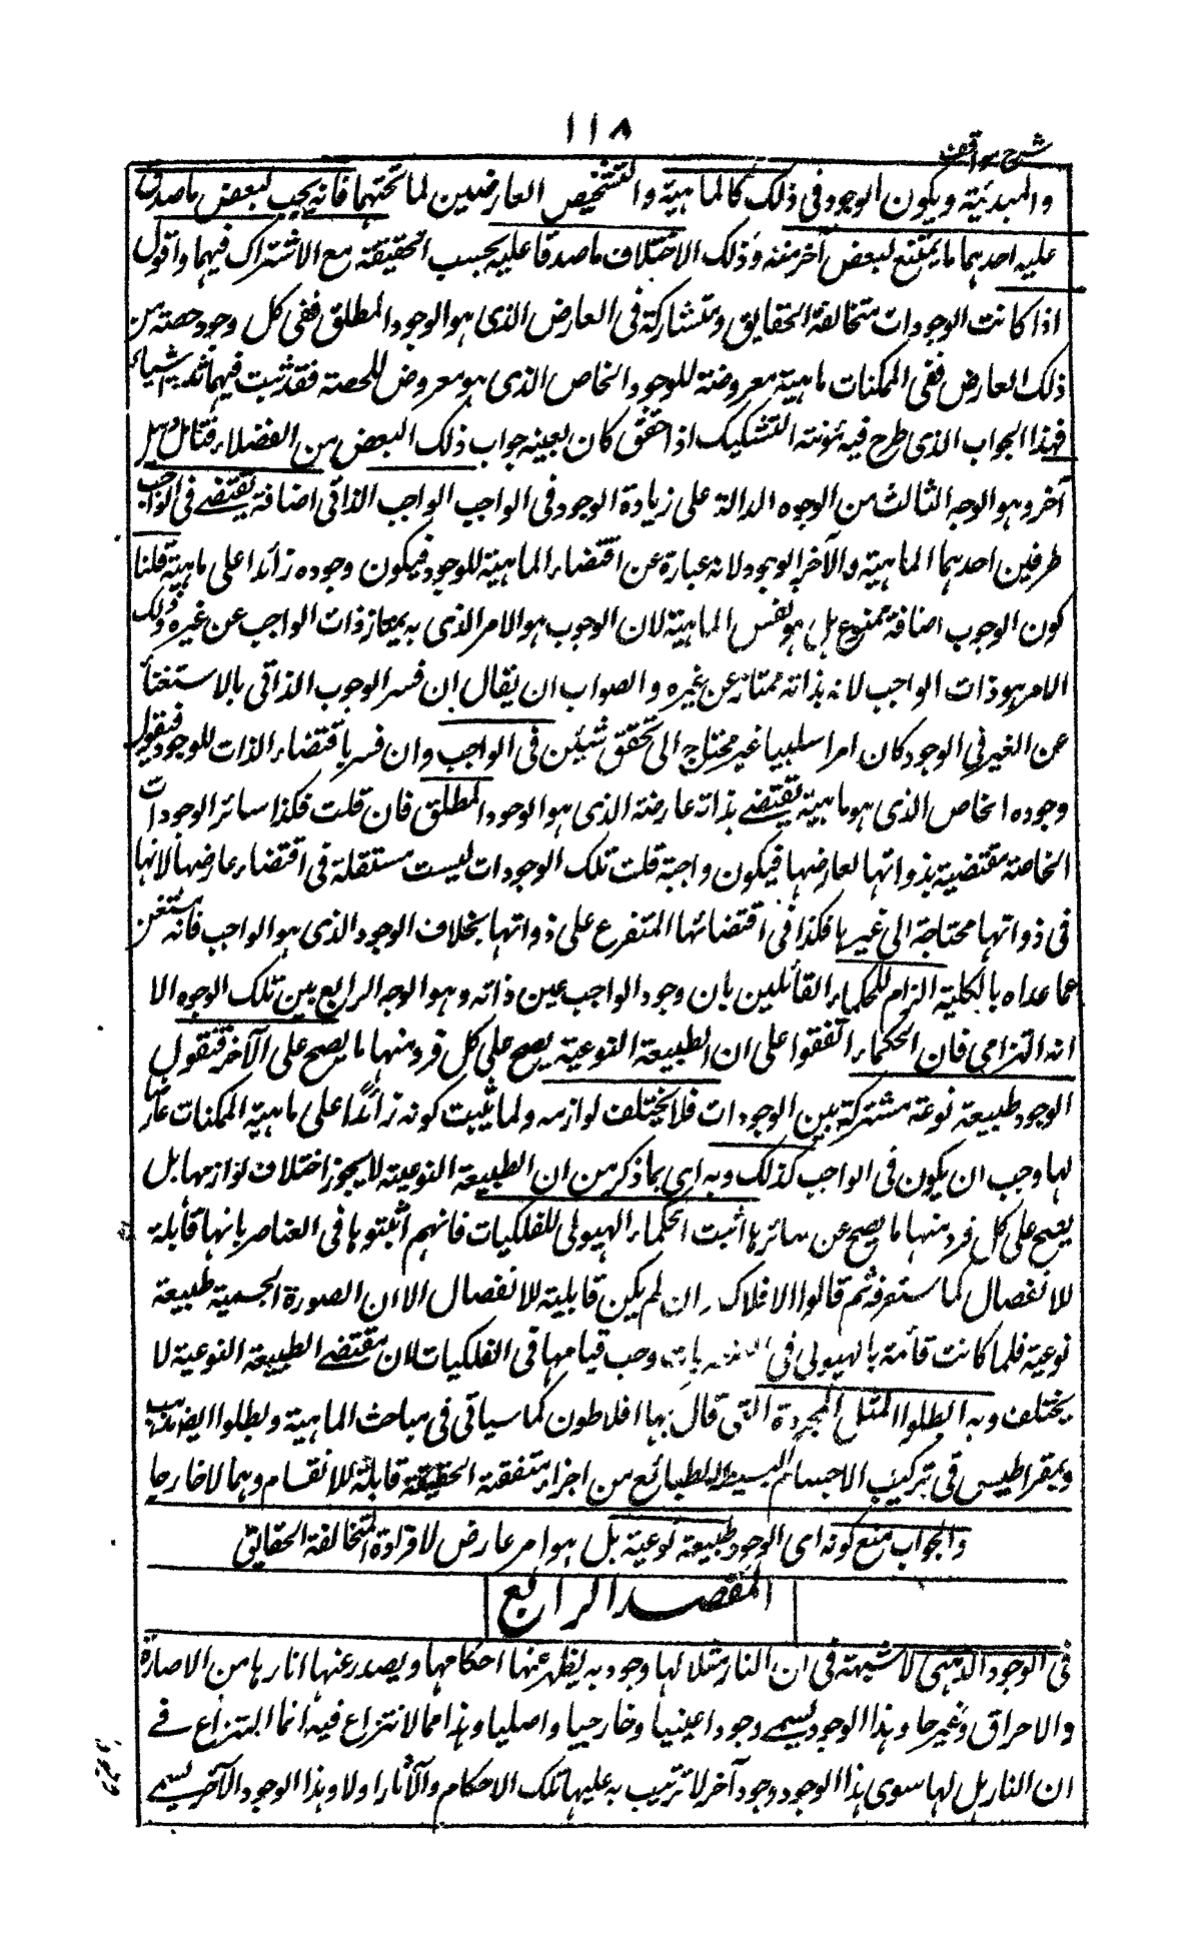 ١١٨
شرح مواقف
والمبدئية ويكون الوجود في ذلك كالماهية والتشخيص العارضين لما تحتهما فانه يجب لبعض ماصدق
عليه احدهما ما يمتنع لبعض آخر منه وذلك الاختلاف ماصدقا عليه بحسب الحقيقة مع الاشتراك فيهما واقول
اذا كانت الوجودات متخالفة الحقايق ومتشاركة في العارض الذى هو الوجود المطلق ففى كل وجود حصة من
ذلك العارض ففى الممكنات ماهية معروضة للوجود الخاص الذى هو معروض للحصة فقد ثبت فيها ثلثة اشياء
فهذا الجواب الذى طرح فيه مؤنته التشكيك اذا حقق كان بعينه جواب ذلك البعض من الفضلاء فتأمل وجه
آخر وهو الوجه الثالث من الوجوه الدالة على زيادة الوجود في الواجب الواجب الذاتى اضافة يقتضے في الواجب
طرفين احدهما الماهية والآخر الوجود لانه عبارة عن اقتضاء الماهية للوجود فيكون وجوده زائدا على ماهيته قلنا
كون الوجوب اضافة ممنوع بل هو نفس الماهية لان الوجوب هو الامر الذى به يمتاز ذات الواجب عن غيره وذلك
الامر هو ذات الواجب لانه بذاته ممتاز عن غيره والصواب ان يقال ان فسر الوجوب الذاتى بالاستغناء
عن الغير في الوجود كان امرا سلبيا غير محتاج الى تحقق شيئين في الواجب وان فسر باقتضاء الذات للوجود فنقول
وجوده الخاص الذى هو ماهيته يقتضے بذاته عارضه الذى هو الوجود المطلق فان قلت فكذا سائر الوجودات
الخاصة مقتضية بذواتها لعارضها فيكون واجبة قلت تلك الوجودات ليست مستقلة في اقتضاء عارضها لانها
في ذواتها محتاجة الى غيرها فكذا في اقتضائها المتفرع على ذواتها بخلاف الوجود الذى هو الواجب فانه مستغن
عما عداه بالكلية الزام للحكماء القائلين بان وجود الواجب عين ذاته وهو الوجه الرابع بين تلك الوجوه الا
انه الزامى فان الحكماء اتفقوا على ان الطبيعة النوعية يصح على كل فرد منها ما يصح على الآخر فنقول
الوجود طبيعة نوعية مشتركة بين الوجودات فلا يختلف لوازمه ولما ثبت كونه زائدا على ماهية الممكنات عارضا
لها وجب ان يكون في الواجب كذلك وبه اى بما ذكر من ان الطبيعة النوعية لا يجوز اختلاف لوازمها بل
يصح على كل فرد منها ما يصح عن سائرها اثبت الحكماء الهيولى للفلكيات فانهم اثبتوها في العناصر بانها قابلة
للانفصال كما ستعرفه ثم قالوا الافلاك وان لم يكن قابلية للانفصال الا ان الصورة الجسمية طبيعة
نوعية فلما كانت قائمة بالهيولى في وجب قيامها في الفلكيات لان مقتضے الطبيعة النوعية لا
يختلف وبه ابطلوا المثل المجردة التى قال بها افلاطون كما سياتى في مباحث الماهية وبطلوا ايضا مذهب
ديمقراطيس في تركيب الاجسام البسيطة الطبائع من اجزاء متفقة الحقيقة قابلة للانقسام وهما لا خارجا
والجواب منع كونه اى الوجود طبيعة نوعية بل هو امر عارض لافراده المتخالفة الحقايق
المقصد الرابع
في الوجود الذهنى لا شبهة في ان النار مثلا لها وجود به يظهر عنها احكامها ويصدر عنها آثارها من الاضاءة
والاحراق وغيرها وهذا الوجود يسمے وجودا عينيا وخارجيا واصليا وهذا مما لا نزاع فيه انما النزاع في
ان النار هل لها سوى هذا الوجود وجود آخر لا يترتب به عليها تلك الاحكام والآثار اولا وهذا الوجود الآخر يسمے